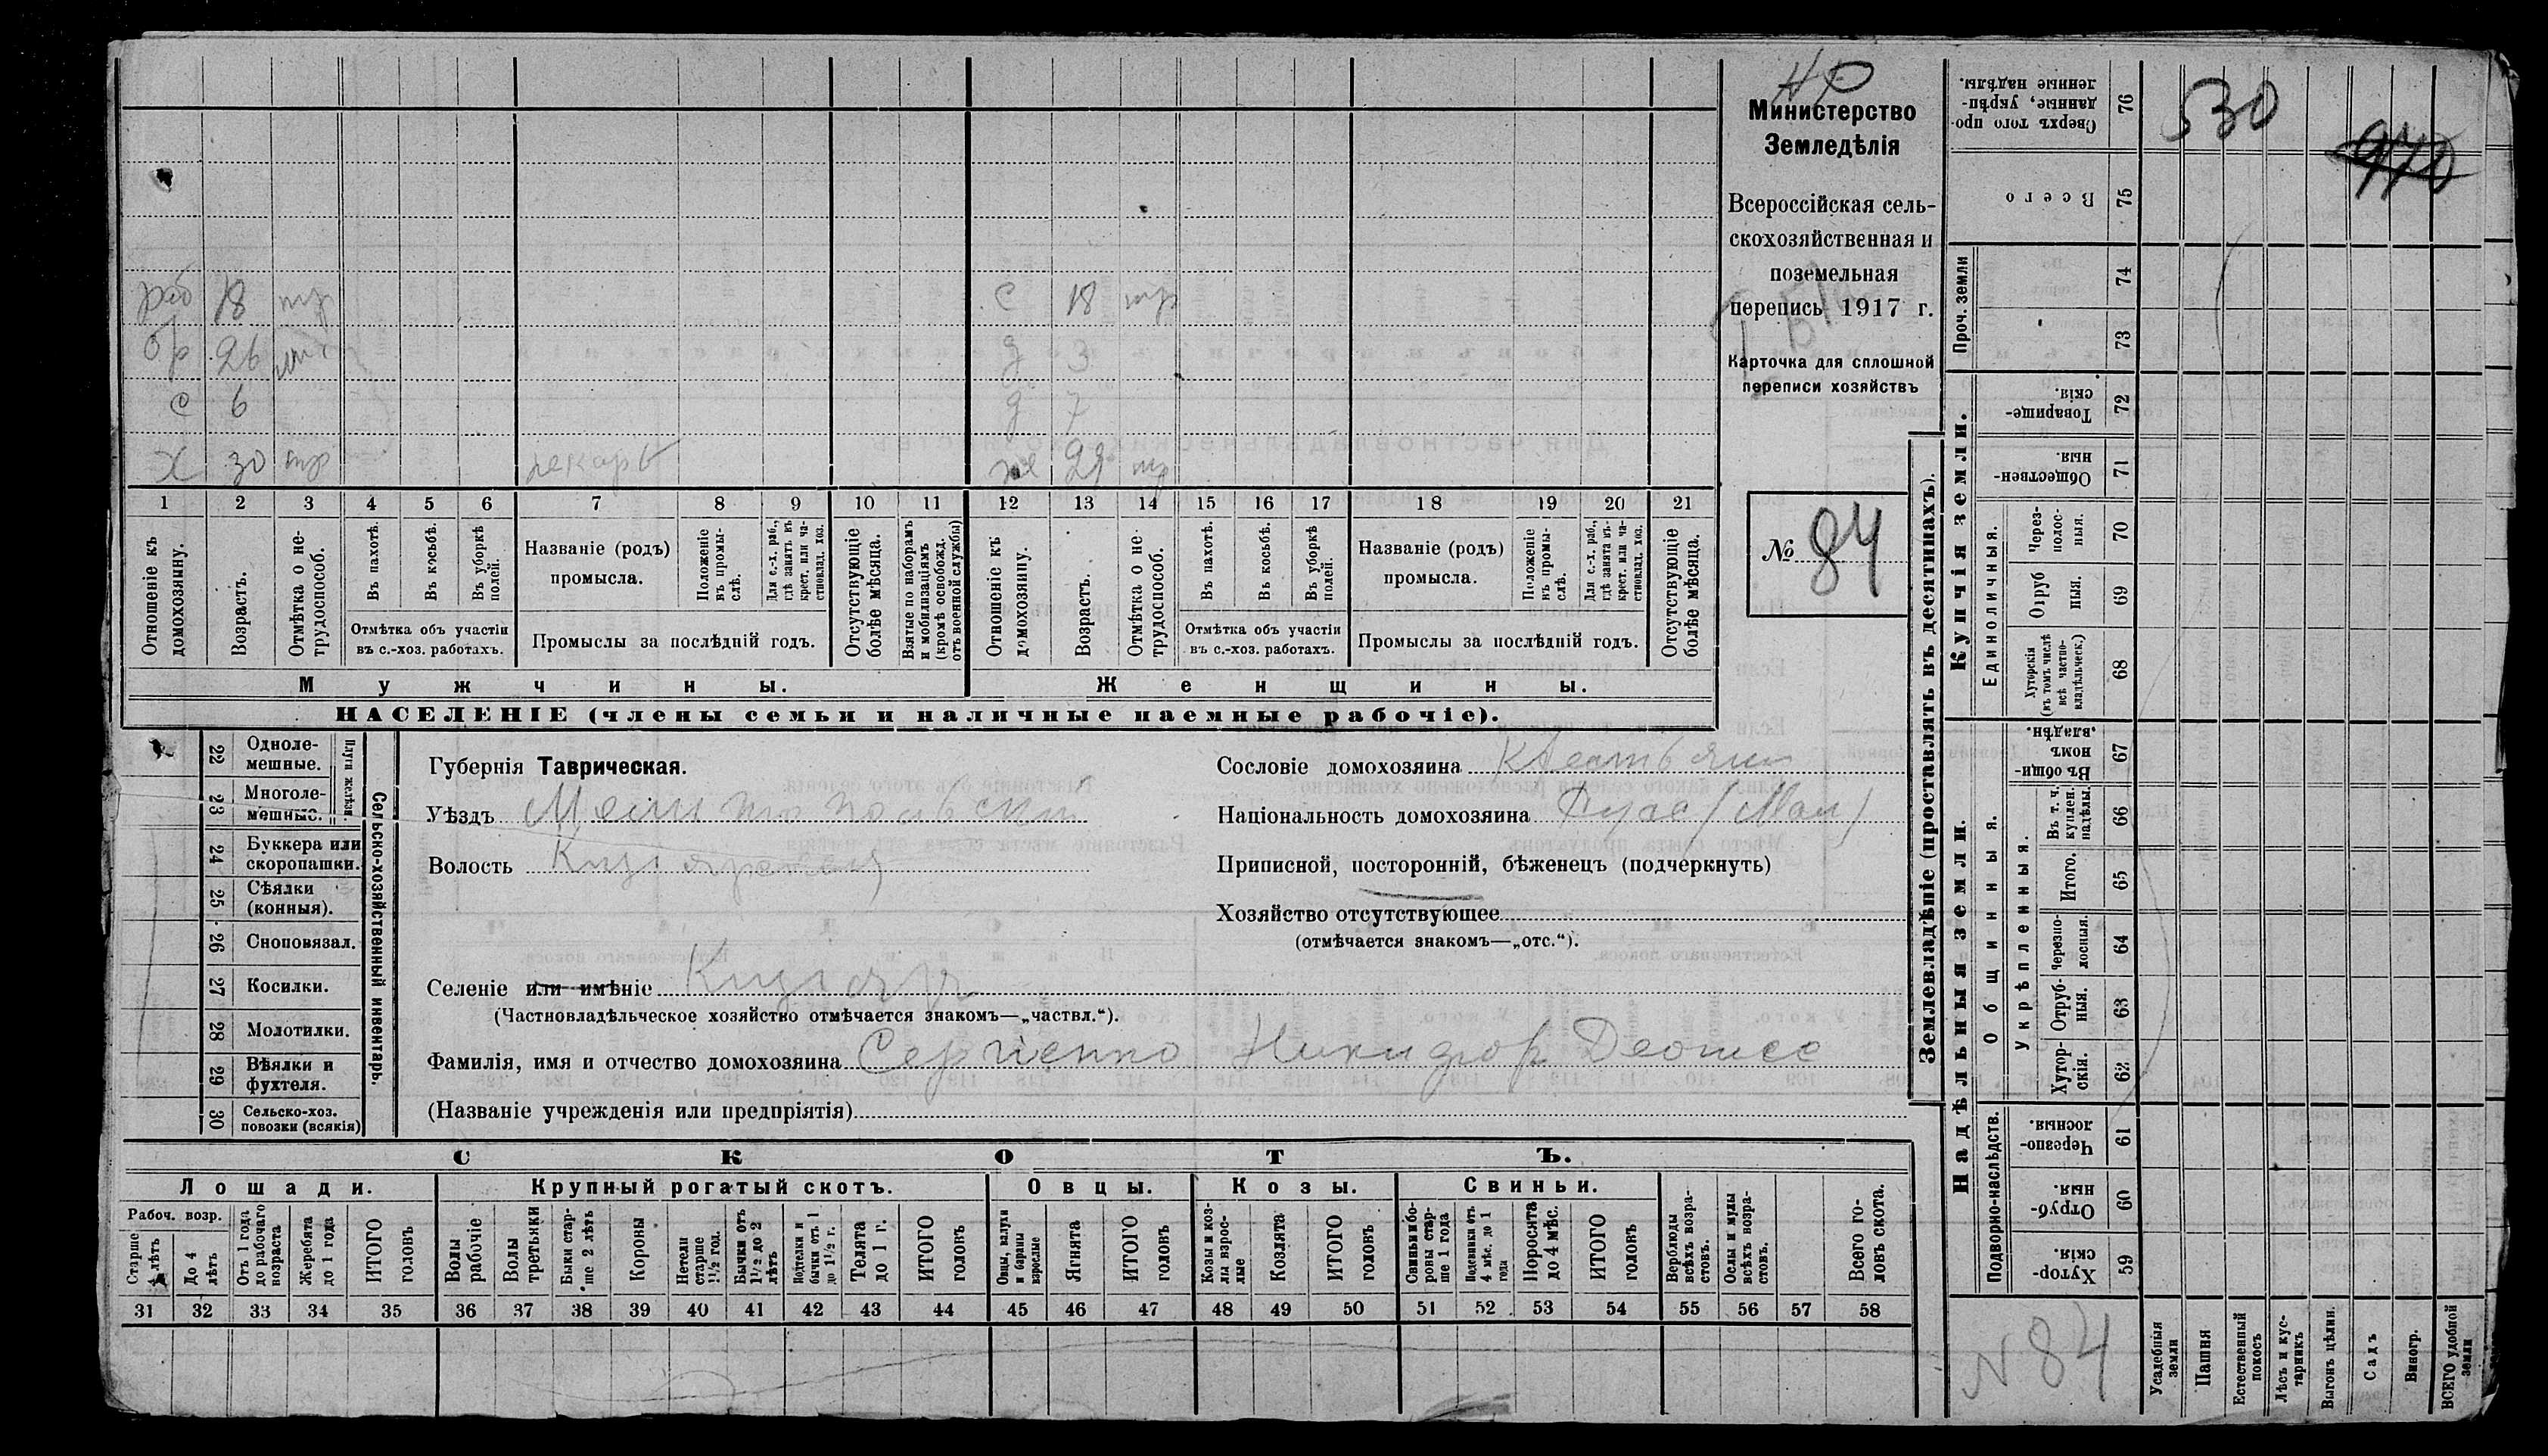 НР
Министерство
Земледѣлія
Всероссійская сель-
скохозяйственная и
поземельная
перепись 1917 г.
Карточка для сплошной
переписи хозяйствъ
№ 84
раб 18 тр
бр 26
с 6
х 30 тр пекарь
с 18 тр
д 3
д 7
же 29 тр
1 2 3 4 5 6 7 8 9 10 11 12 13 14 15 16 17 18 19 20 21
Отношеніе къ домохозяину.
Возрастъ.
Отмѣтка о не-трудоспособ.
Въ пахотѣ.
Въ косьбѣ.
Въ уборкѣ полей.
Отмѣтка объ участіи
въ с.-хоз. работахъ.
Названіе (родъ)
промысла.
Положеніе въ промы-слѣ.
Для с.-х. раб., гдѣ занятъ въ крест. или ча-стновлад. хоз.
Промыслы за послѣдній годъ.
Отсутствующіе болѣе мѣсяца.
Взятые по наборамъ и мобилизаціямъ (кромѣ освобожд. отъ военной службы)
Отношеніе къ домохозяину.
Возрастъ.
Отмѣтка о не-трудоспособ.
Въ пахотѣ.
Въ косьбѣ.
Въ уборкѣ полей.
Отмѣтка объ участіи
въ с.-хоз. работахъ.
Названіе (родъ)
промысла.
Положеніе въ промы-слѣ.
Для с.-х. раб., гдѣ занята въ крест. или ча-стновлад. хоз.
Промыслы за послѣдній годъ.
Отсутствующіе болѣе мѣсяца.
Мужчины.
Женщины.
НАСЕЛЕНІЕ (члены семьи и наличные наемные рабочіе).
22 Одноле-мешные.
23 Многоле-мешные.
Плуги желѣзн.
24 Буккера или скоропашки.
25 Сѣялки (конныя).
26 Сноповязал.
27 Косилки.
28 Молотилки.
29 Вѣялки и фухтеля.
30 Сельско-хоз. повозки (всякія)
Сельско-хозяйственный инвентарь.
Губернія Таврическая.
Уѣздъ Мелитопольскій
Волость
Селеніе или имѣніе Кизіяр
(Частновладѣльческое хозяйство отмѣчается знакомъ—„частвл.“).
Фамилія, имя и отчество домохозяина Сергіенко Никифор
(Названіе учрежденія или предпріятія)
Сословіе домохозяина
Національность домохозяина Русс (Мал)
Приписной, посторонній, бѣженецъ (подчеркнуть)
Хозяйство отсутствующее
(отмѣчается знакомъ—„отс.“).
СКОТЪ.
Лошади. Крупный рогатый скотъ. Овцы. Козы. Свиньи.
Рабоч. возр.
Старше 4 лѣтъ
До 4 лѣтъ
Отъ 1 года до рабочаго возраста
Жеребята до 1 года
ИТОГО головъ
Волы рабочіе
Волы третьяки
Быки стар-ше 2 лѣтъ
Коровы
Нетели старше 1½ год.
Бычки отъ 1½ до 2 лѣтъ
Подтелки и бычки отъ 1 до 1½ г.
Телята до 1 г.
ИТОГО головъ
Овцы, валухи и бараны взрослые
Ягнята
ИТОГО головъ
Козы и коз-лы взрос-лые
Козлята
ИТОГО головъ
Свиньи и бо-ровы стар-ше 1 года
Подсвинки отъ 4 мѣс. до 1 года
Поросята до 4 мѣс.
ИТОГО головъ
Верблюды всѣхъ возра-стовъ.
Ослы и мулы всѣхъ возра-стовъ.
Всего го-ловъ скота.
31 32 33 34 35 36 37 38 39 40 41 42 43 44 45 46 47 48 49 50 51 52 53 54 55 56 57 58
Землевладѣніе (проставлять въ десятинахъ).
Купчія земли.
Надѣльныя земли.
Сверхъ того про-данные, укрѣп-ленные надѣлы. 76
Всего 75
Проч. земли 74 73
Товарище-скія. 72
Обществен-ныя. 71
Единоличныя.
Через-полос-ныя. 70
Отруб-ныя. 69
Хуторскія (въ томъ числѣ всѣ частно-владѣльческ.) 68
Общинныя.
Въ общин-номъ владѣн. 67
Укрѣпленныя.
Въ т. ч. куплен. надѣлы. 66
Итого. 65
Черезпо-лосныя. 64
Отруб-ныя. 63
Хутор-скія. 62
Подворно-наслѣдств.
Черезпо-лосныя. 61
Отруб-ныя. 60
Хутор-скія. 59
530
970
N 84
Усадебныя земли
Пашня
Естественный покосъ
Лѣсъ и кус-тарникъ
Выгонъ цѣлин.
Садъ
Виногр.
ВСЕГО удобной земли